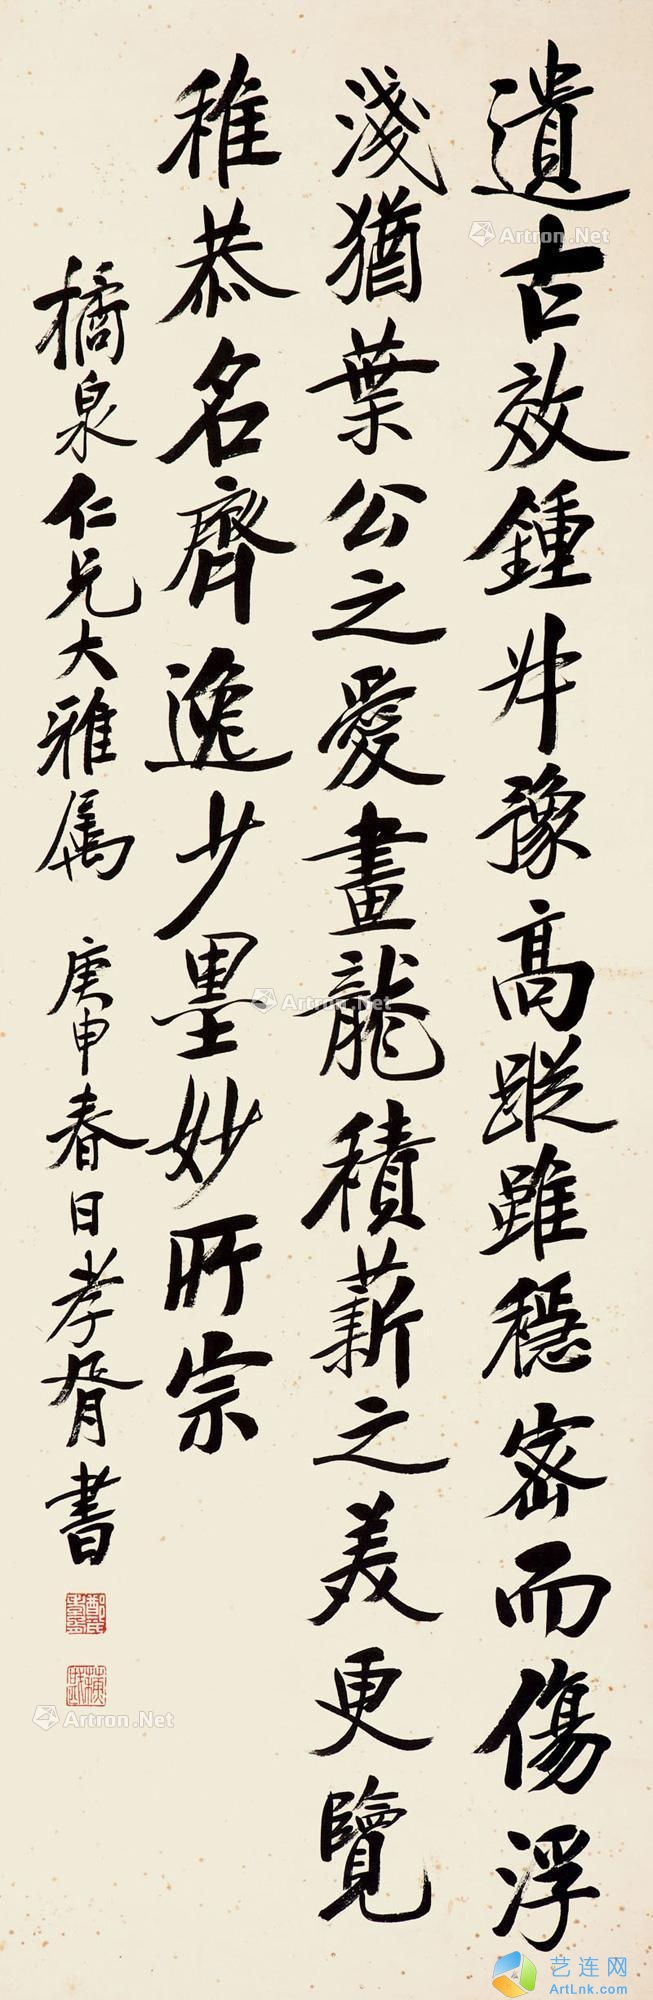 遺古效鍾叔豫高蹤雖穩密而傷浮
淺猶葉公之愛畫龍積薪之美更覽
稚恭名齊逸少墨妙所宗
橘泉仁兄大雅屬 庚申春日孝胥書
Artron.Net
Artron.Net
Artron.Net
Artron.Net
Artron.Net
艺连网
ArtLnk.com